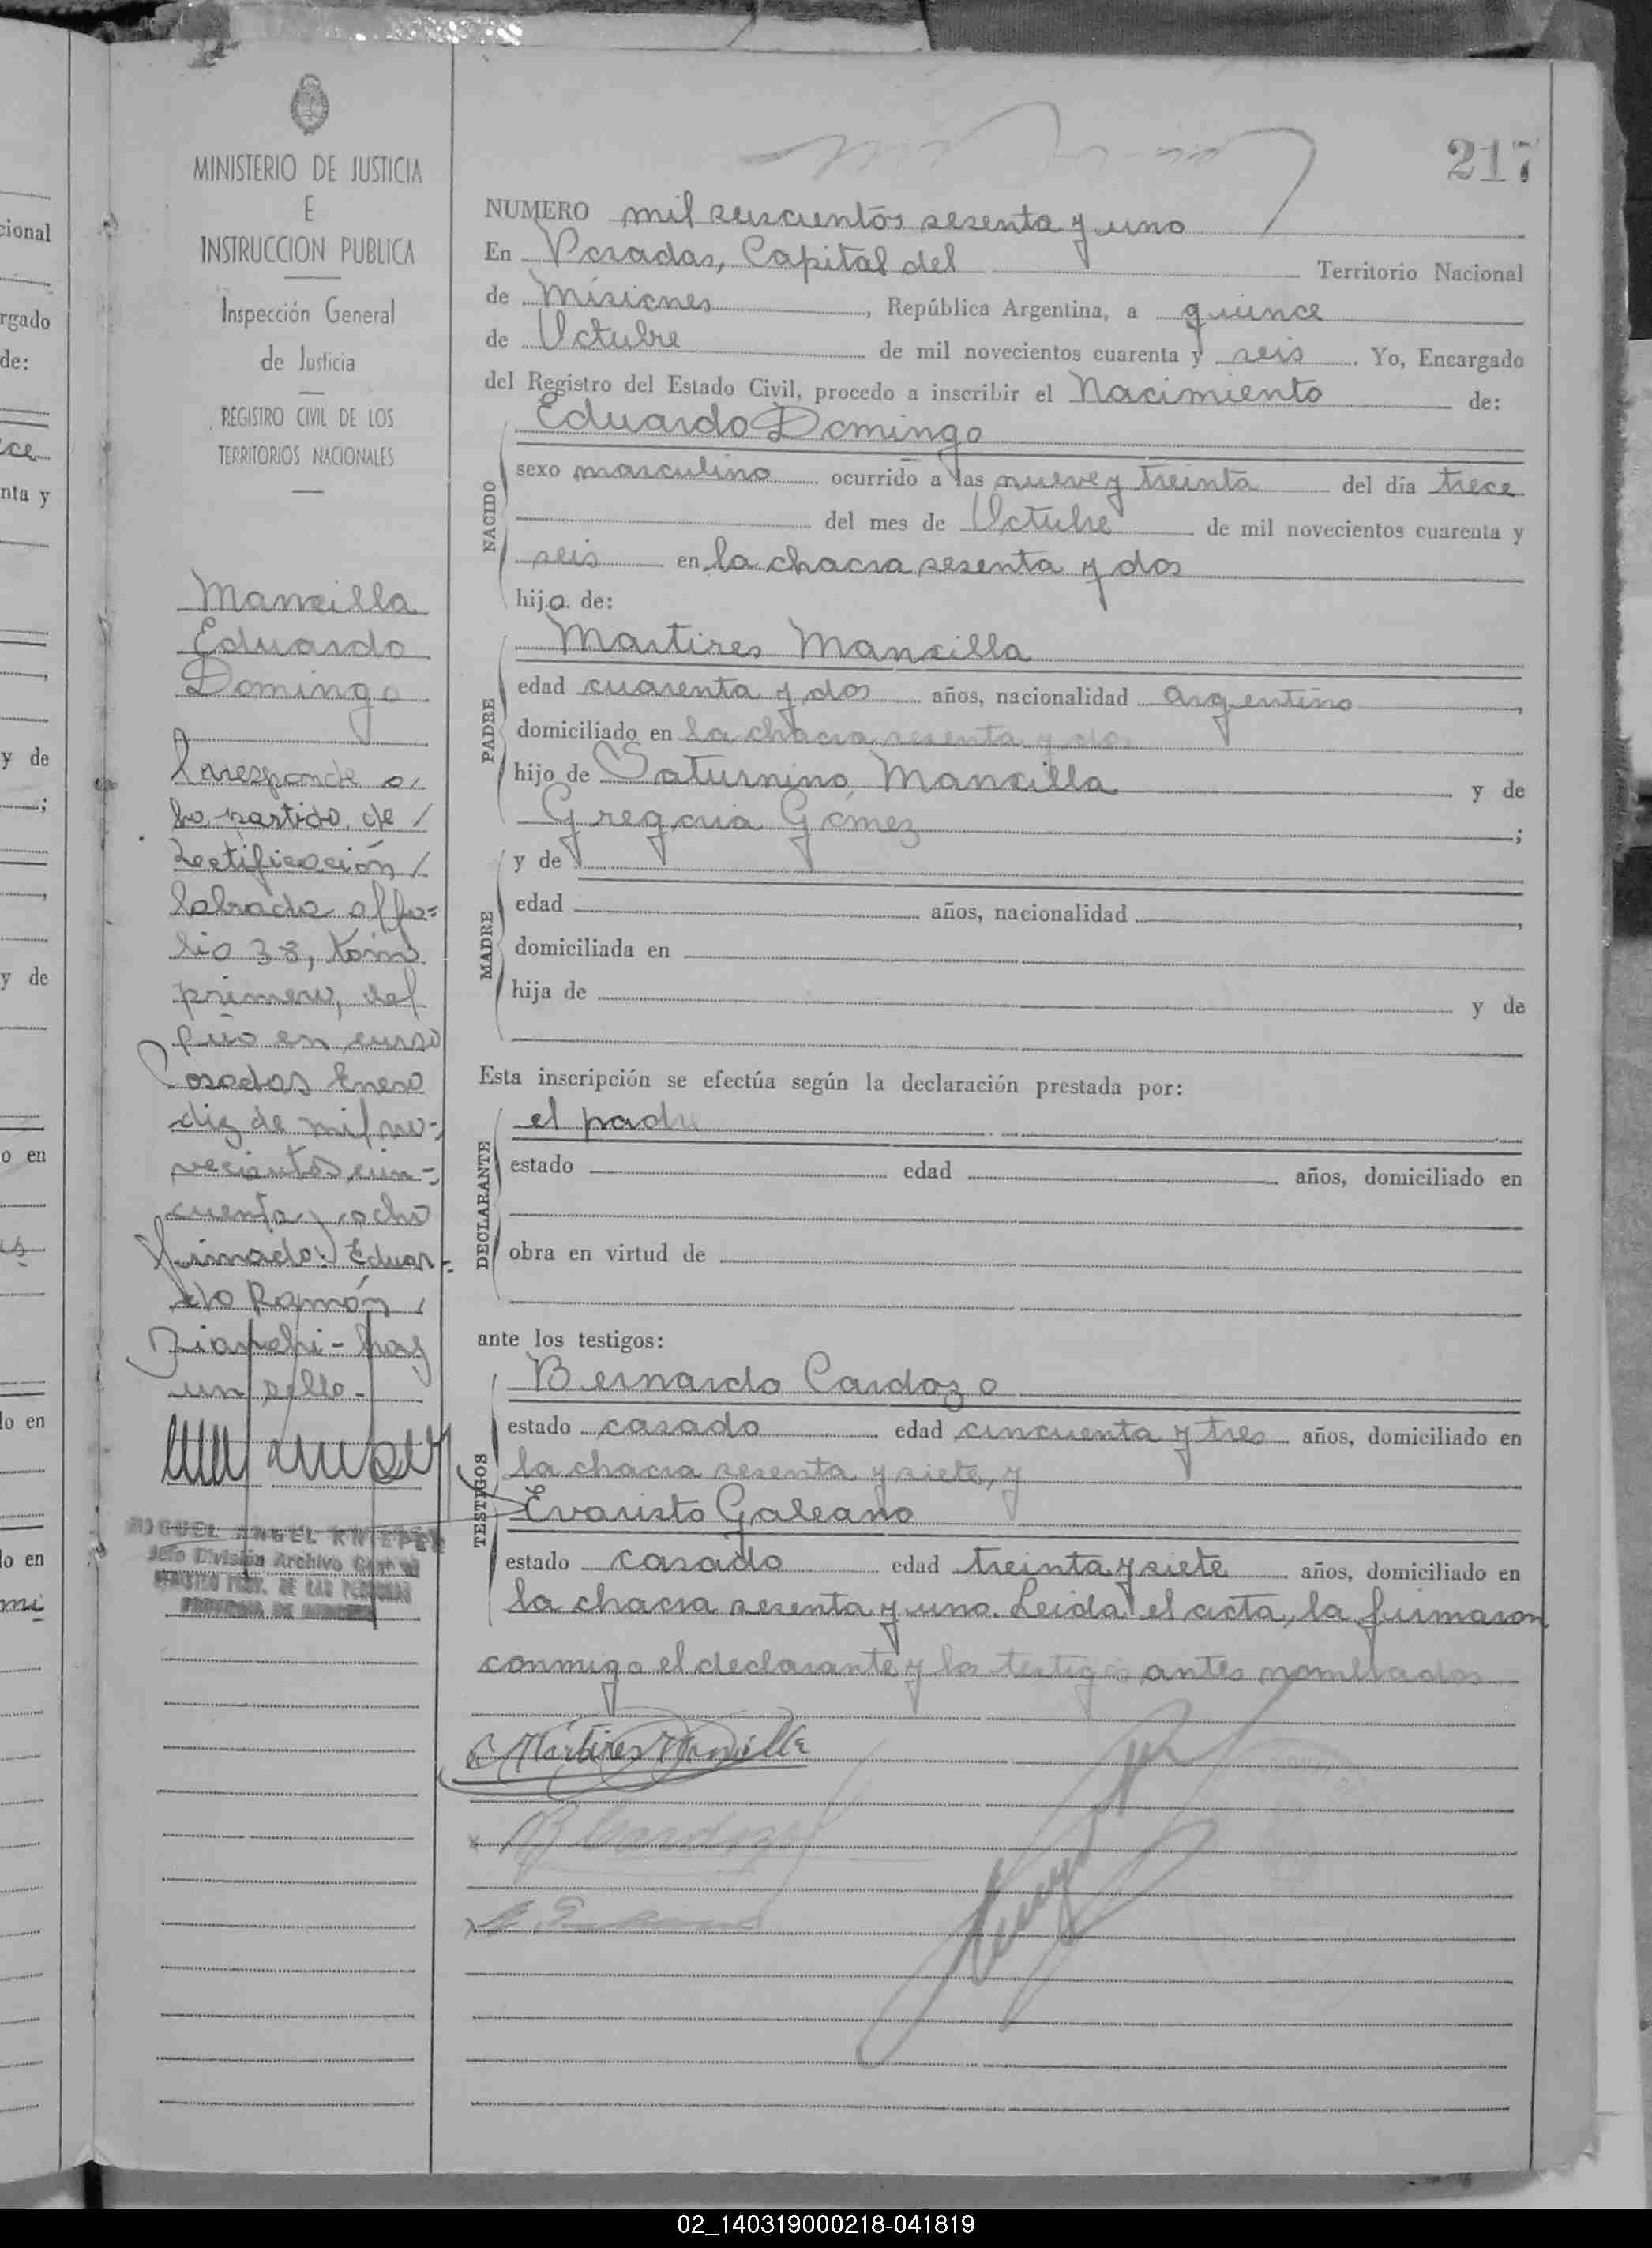 217
MINISTERIO DE JUSTICIA
E
INSTRUCCION PUBLICA
Inspección General
de Justicia
REGISTRO CIVIL DE LOS
TERRITORIOS NACIONALES
Mansilla
Eduardo
Domingo
Corresponde a
la partida de /
rectificación /
labrada al fo=
lio 38, tomo
primero, del
año en curso
Posadas Enero
diez de mil no-
vecientos cin-
cuenta y ocho
firmado: Eduar-
do Ramón
Bianchi - hay
un sello -
MIGUEL ANGEL
Jefe División Archivo
NUMERO mil seiscientos sesenta y uno
En Posadas, Capital del Territorio Nacional
de Misiones, República Argentina, a quince
de Octubre de mil novecientos cuarenta y seis. Yo, Encargado
del Registro del Estado Civil, procedo a inscribir el Nacimiento de:
NACIDO
Eduardo Domingo
sexo masculino ocurrido a las nueve y treinta del día trece
del mes de Octubre de mil novecientos cuarenta y
seis en la chacra sesenta y dos
hijo de:
PADRE
Martires Mansilla
edad cuarenta y dos años, nacionalidad argentino,
domiciliado en la chacra sesenta y dos
hijo de Saturnino Mansilla y de
Gregoria Gómez;
MADRE
y de
edad años, nacionalidad,
domiciliada en
hija de y de
Esta inscripción se efectúa según la declaración prestada por:
DECLARANTE
el padre
estado edad años, domiciliado en
obra en virtud de
ante los testigos:
TESTIGOS
Bernardo Cardozo
estado casado edad cincuenta y tres años, domiciliado en
la chacra sesenta y siete, y
Evaristo Galeano
estado casado edad treinta y siete años, domiciliado en
la chacra sesenta y uno. Leida el acta, la firmaron
conmigo el declarante y los testigos antes nombrados
Mártires Mansilla
02_140319000218-041819